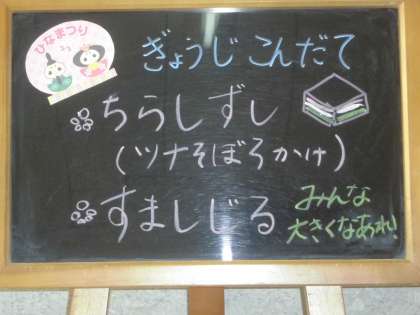 ひなまつり
ぎょうじこんだて
ちらしずし
(ツナそぼろかけ)
すましじる
みんな
大きくなあれ!